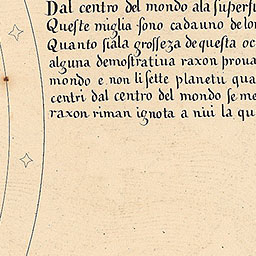 Dal centro del mondo ala superfi
Queste miglia sono cadauno de lon
Quanto siala grosseza de questa oc
alguna demostratiua raxon proua
mondo e non li sette planetti qua
centri dal centro del mondo se me
raxon riman ignota a niui la qu